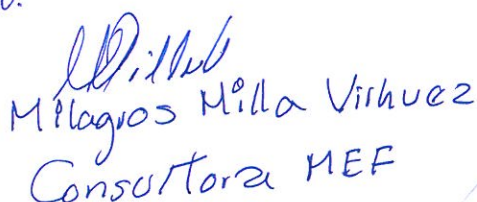 Milagros Milla Virhuez
Consultora MEF